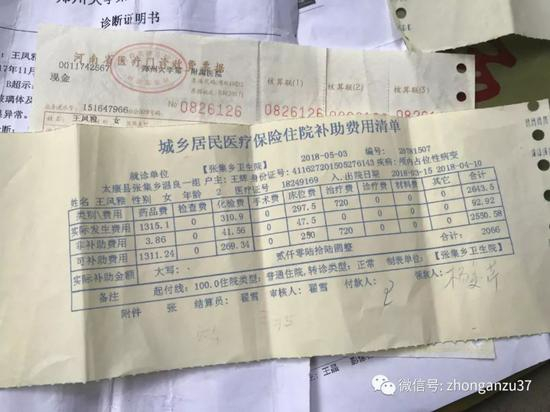 诊断证明书
王凤雅
B超示:
现金
0011742667
河南省医疗门诊收费票据
151647966
王凤雅 女
№ 0826126
核算联(1)
0826126
核算联(2)
核算联(3)
城乡居民医疗保险住院补助费用清单
就诊单位: 【张集乡卫生院】 2018-05-03
疾病: 颅内占位性病变
姓名 王凤雅 性别 女 年龄 2 医疗证号 18249169 入.出院日期 2018-03-15 2018-04-10
类别\费用 药品费 检查费 化验费 手术费 床位费 治疗费 材料费 其它 合计
实际发生费用 1315.1 0 310.9 0 297.5 720 0 0 2643.5
非补助费用 3.86 0 41.56 0 47.5 0 0 0 92.92
可补助费用 1311.24 0 269.34 0 250 720 0 0 2550.58
实际补助金额 大写: 贰仟零陆拾陆调整 合计: 2066
备注 起付线: 100.0住院类型: 普通住院, 转诊类型: 正常 制表单位: 【张集乡卫生院】
附件 张 结算员: 翟雪 审核人: 翟雪 付款人: 领款人:
微信号: zhonganzu37